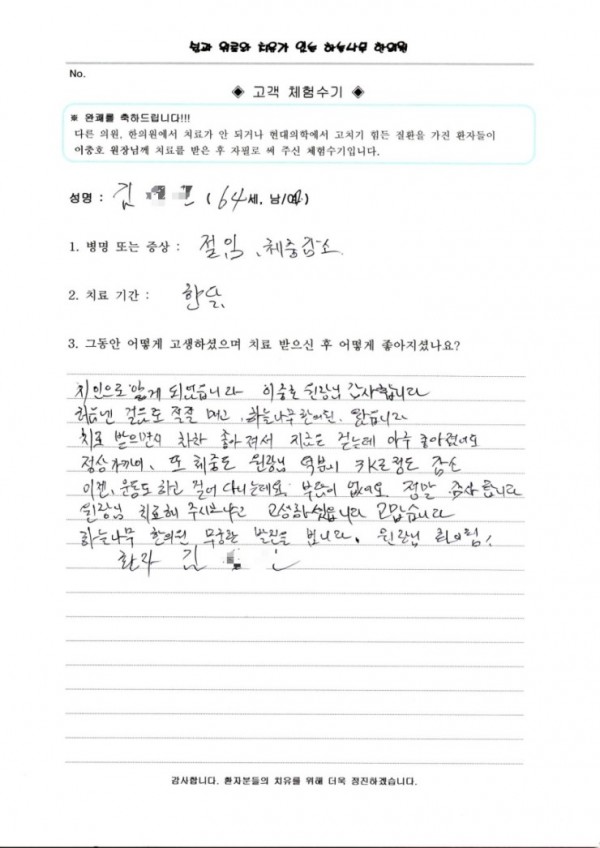 No.
◈ 고객 체험수기 ◈
※ 완쾌를 축하드립니다!!!
다른 의원, 한의원에서 치료가 안 되거나 현대의학에서 고치기 힘든 질환을 가진 환자들이
이중호 원장님께 치료를 받은 후 자필로 써 주신 체험수기입니다.
성명 : 김 (64세, 남/여)
1. 병명 또는 증상 : 절임, 체중감소
2. 치료 기간 : 한달
3. 그동안 어떻게 고생하셨으며 치료 받으신 후 어떻게 좋아지셨나요?
지인으로 알게 되었습니다 이중호 원장님 감사합니다
처음엔 걸음도 메고, 하늘나무한의원. 왔습니다
치료 받으면서 차차 좋아져서 지금은 걷는데 아주 좋아졌어요
정상까지, 또 체중도 원장님 덕분에 3K로정도 감소
이젠, 운동도 하고 걸어 다니는데요 부담이 없어요 정말 감사 합니다
원장님 치료해 주시느라고 고생하셨습니다 고맙습니다
하늘나무 한의원 무궁한 발전을 빕니다. 원장님
환자 김
감사합니다. 환자분들의 치유를 위해 더욱 정진하겠습니다.